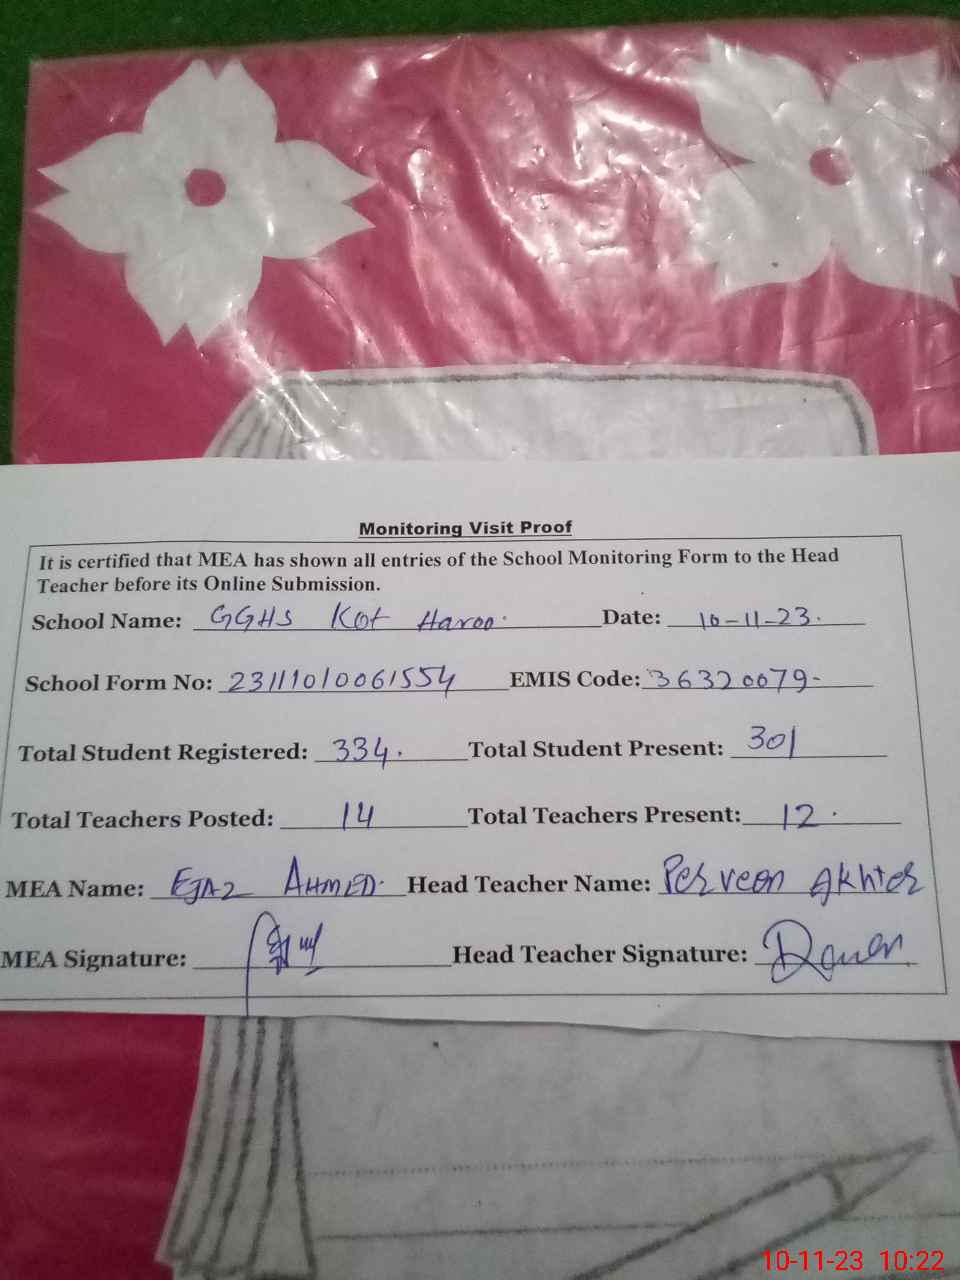 Monitoring Visit Proof
It is certified that MEA has shown all entries of the School Monitoring Form to the Head
Teacher before its Online Submission.
School Name: GGHS Kot Haroo. Date: 10-11-23.
School Form No: 23111010061554 EMIS Code: 36320079-
Total Student Registered: 334. Total Student Present: 301
Total Teachers Posted: 14 Total Teachers Present: 12.
MEA Name: EJAZ AHMED. Head Teacher Name: Perveen Akhter
MEA Signature: Head Teacher Signature:
10-11-23 10:22